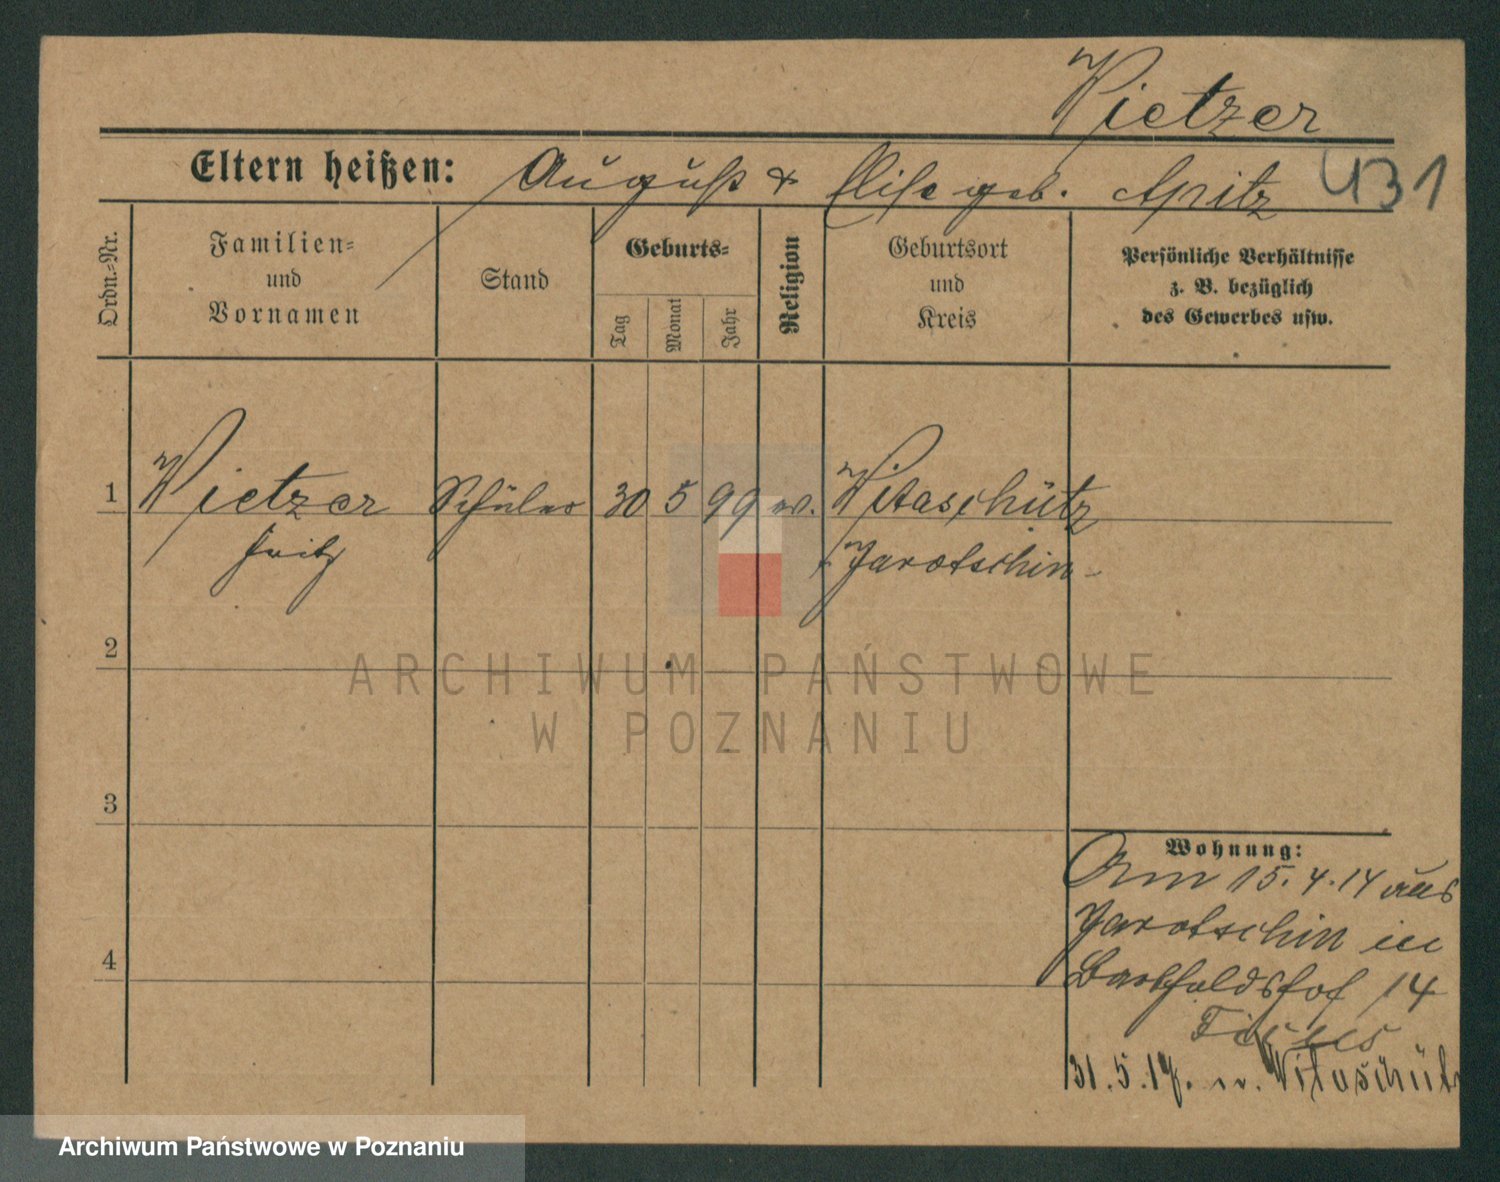 Wietzer
Eltern heißen: August & Elise geb. Apitz 431
Ordn.-Nr.
Familien-
und
Vornamen
Stand
Geburts-
Tag
Monat
Jahr
Religion
Geburtsort
und
Kreis
Persönliche Verhältnisse
z. B. bezüglich
des Gewerbes usw.
1 Wietzer Schüler 30 5 99 ev. Witaschütz
Fritz Jarotschin
2
3
4
Wohnung:
Am 15.4.14 aus
Jarotschin in
14
31.5.17. n. Witaschütz
ARCHIWUM PAŃSTWOWE
W POZNANIU
Archiwum Państwowe w Poznaniu